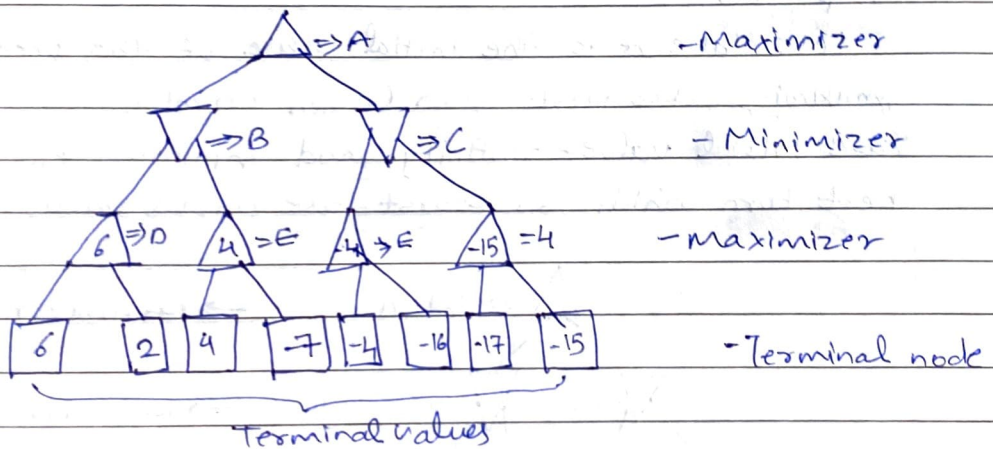 ⇒A -Maximizer
⇒B ⇒C - Minimizer
6 ⇒D 4 ⇒E -4 ⇒E -15 =4 -maximizer
6 2 4 -7 -4 -16 -17 -15 -Terminal node
Terminal values